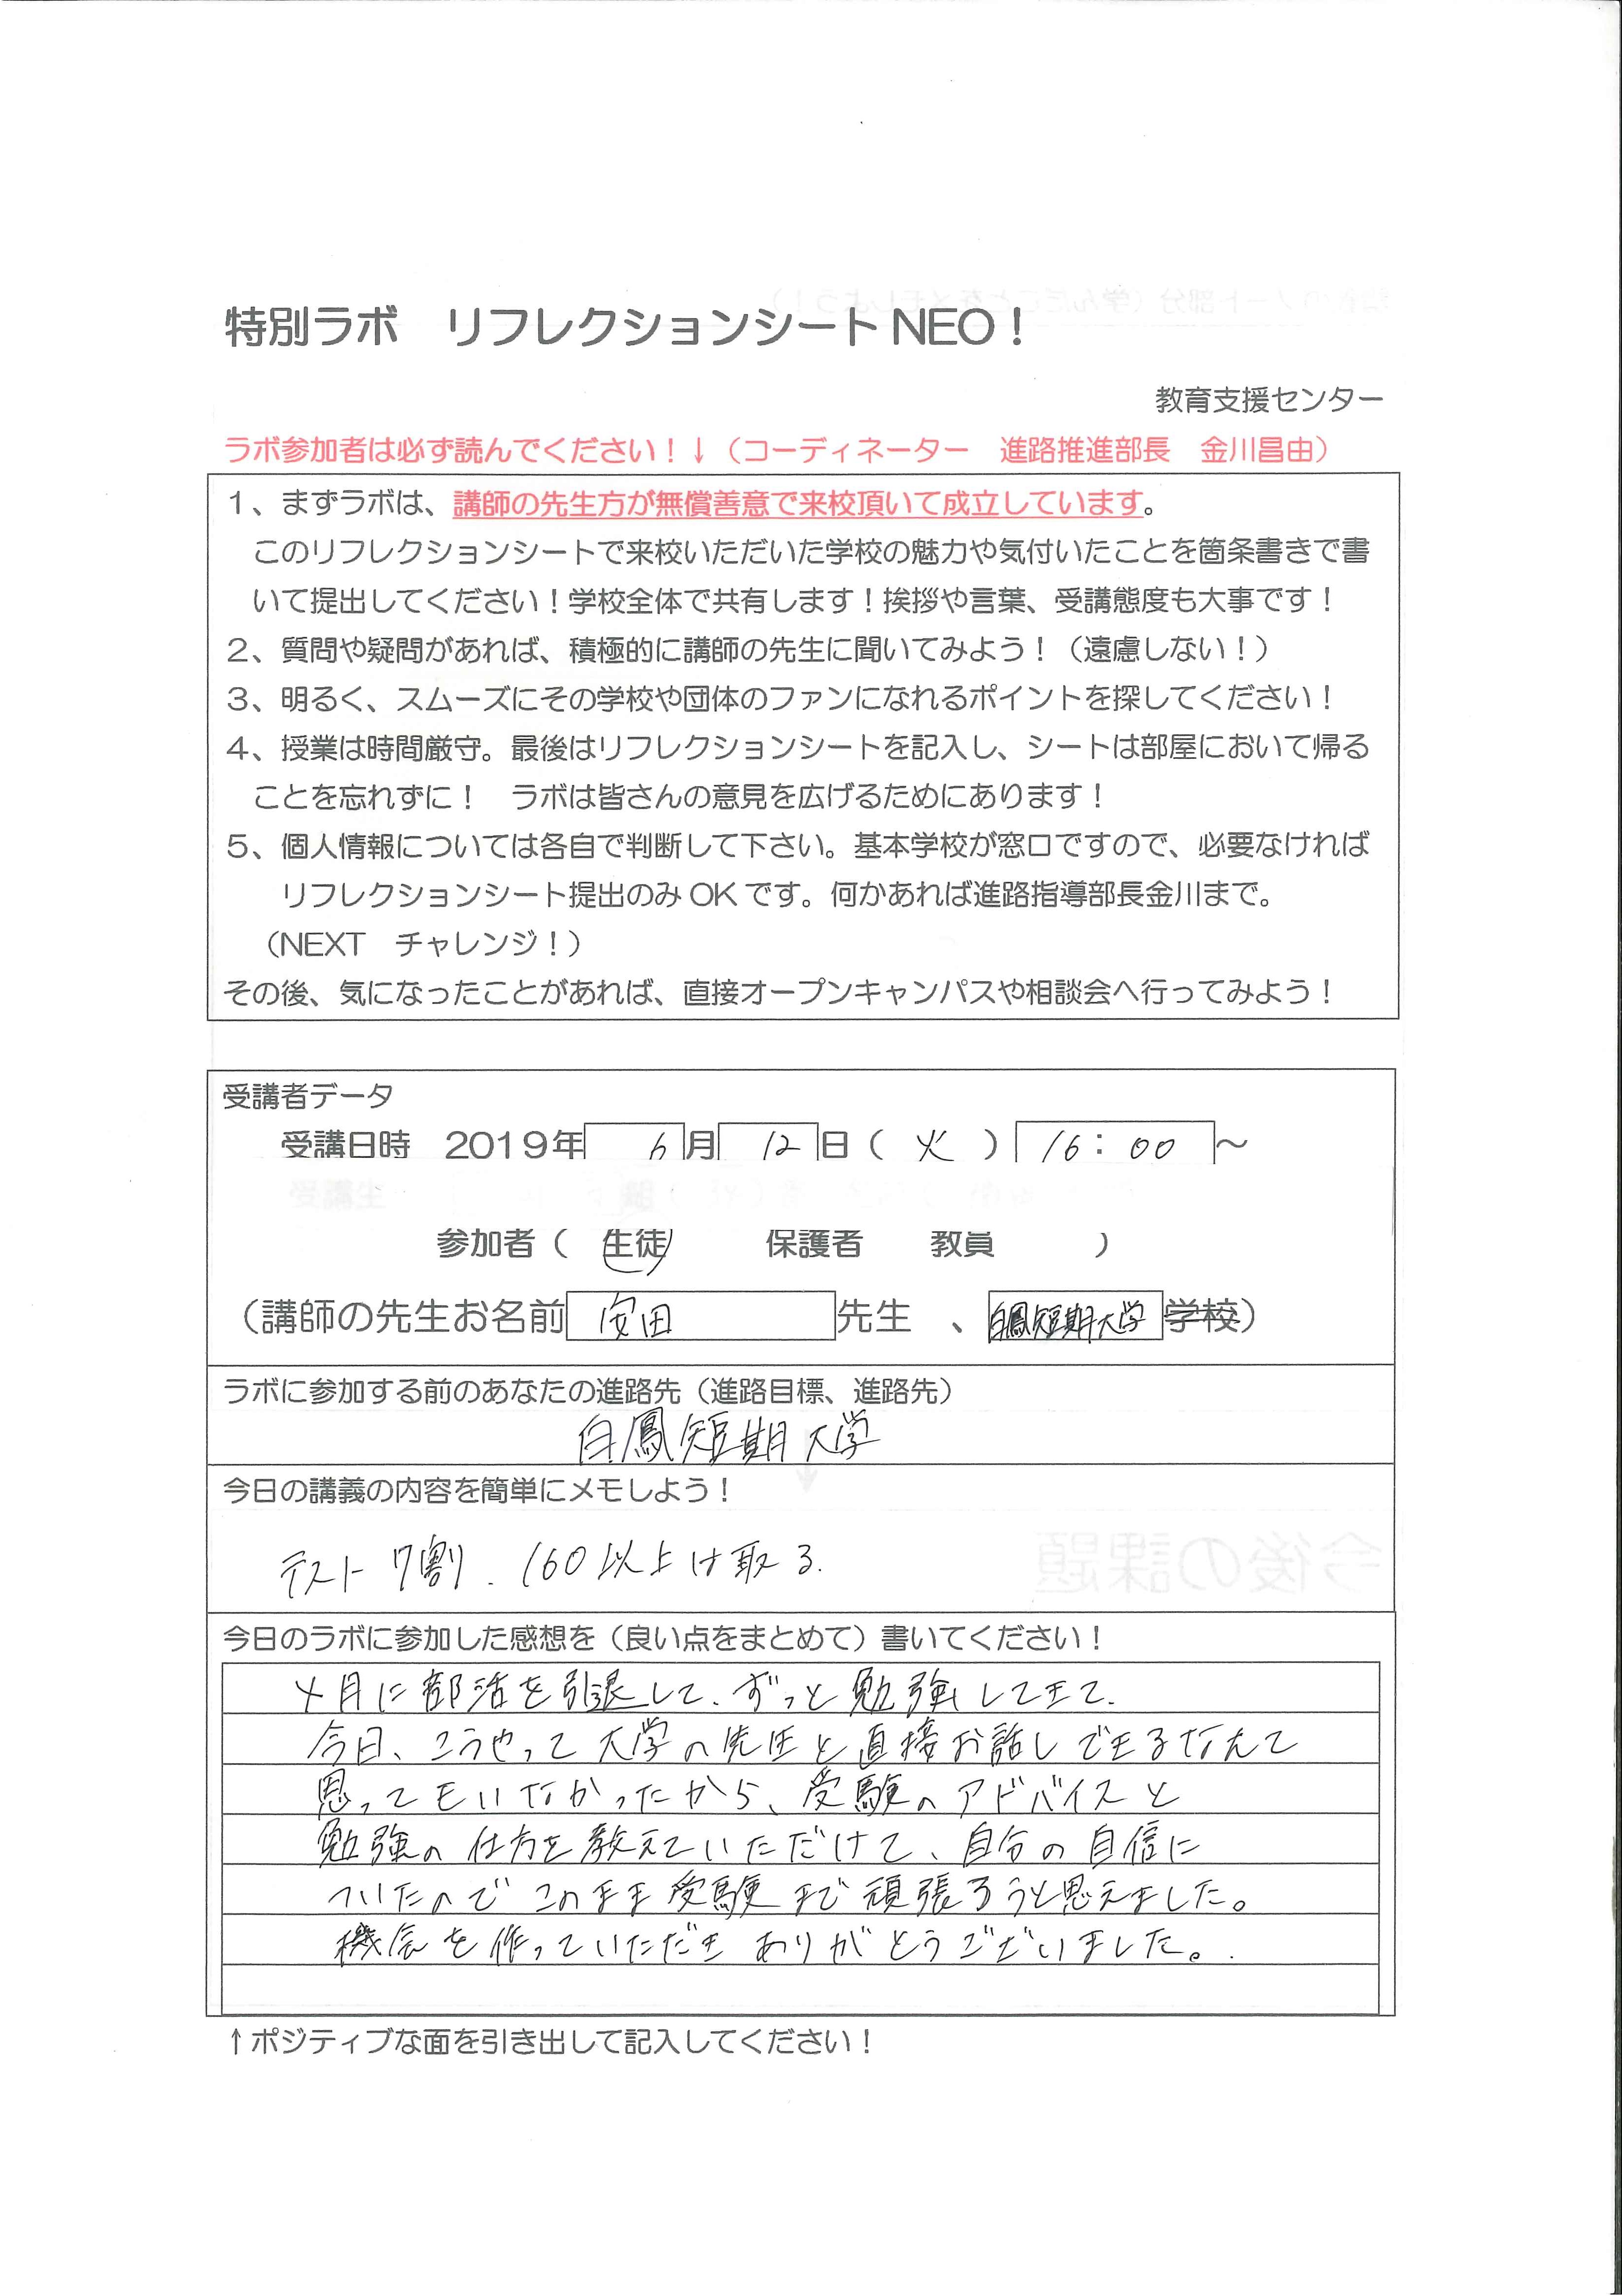 特別ラボ　リフレクションシート NEO！
教育支援センター
ラボ参加者は必ず読んでください！↓（コーディネーター　進路推進部長　金川昌由）
１、まずラボは、講師の先生方が無償善意で来校頂いて成立しています。
このリフレクションシートで来校いただいた学校の魅力や気付いたことを箇条書きで書
いて提出してください！学校全体で共有します！挨拶や言葉、受講態度も大事です！
２、質問や疑問があれば、積極的に講師の先生に聞いてみよう！（遠慮しない！）
３、明るく、スムーズにその学校や団体のファンになれるポイントを探してください！
４、授業は時間厳守。最後はリフレクションシートを記入し、シートは部屋において帰る
ことを忘れずに！　ラボは皆さんの意見を広げるためにあります！
５、個人情報については各自で判断して下さい。基本学校が窓口ですので、必要なければ
リフレクションシート提出のみ OK です。何かあれば進路指導部長金川まで。
（NEXT　チャレンジ！）
その後、気になったことがあれば、直接オープンキャンパスや相談会へ行ってみよう！
受講者データ
受講日時　2019年 6月 12日（ 火 ）16：00～
参加者（　生徒　　保護者　　教員　　）
（講師の先生お名前 安田 先生　、白鳳短期大学 学校）
ラボに参加する前のあなたの進路先（進路目標、進路先）
白鳳短期大学
今日の講義の内容を簡単にメモしよう！
テスト7割．160以上は取る．
今日のラボに参加した感想を（良い点をまとめて）書いてください！
4月に部活を引退して、ずっと勉強してきて、
今日、こうやって大学の先生と直接お話しできるなんて
思ってもいなかったから、受験のアドバイスと
勉強の仕方を教えていただけて、自分の自信に
ついたのでこのまま受験まで頑張ろうと思えました。
機会を作っていただきありがとうございました。
↑ポジティブな面を引き出して記入してください！